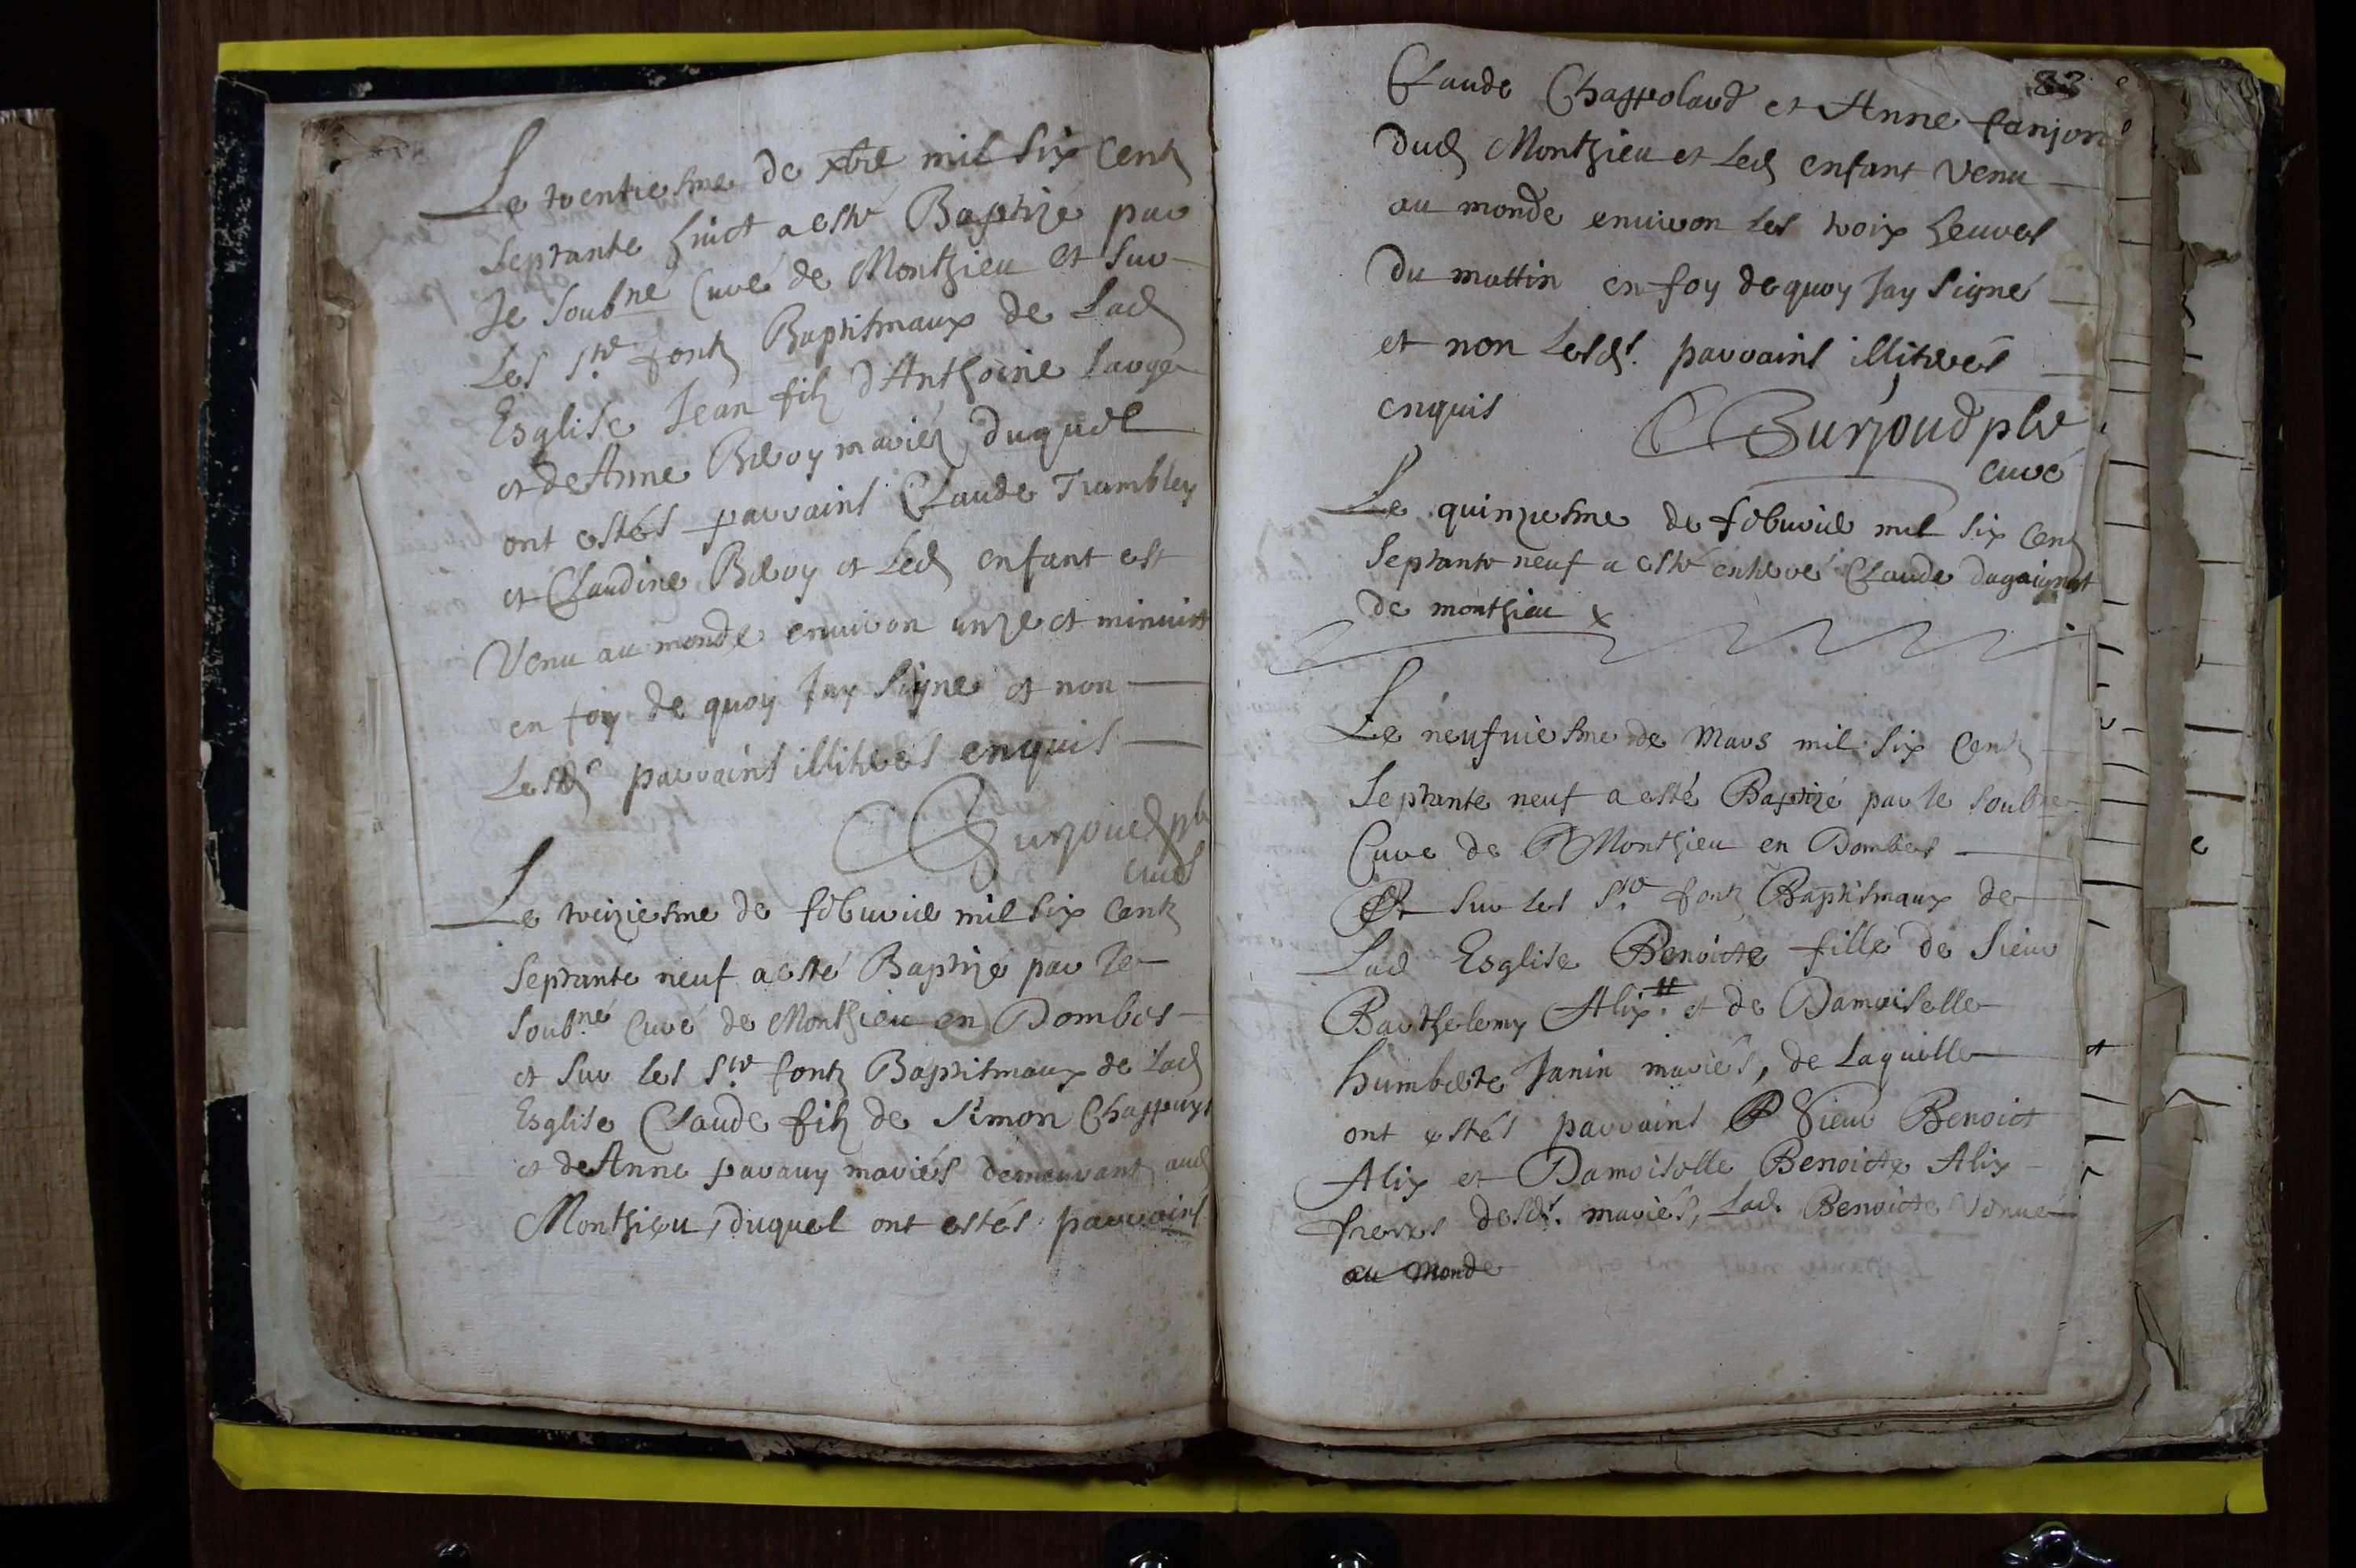 Le trentiesme de xbre mil six centz
septante huict a esté Baptizé par
Je soubné Curé de Monthieu et sur
Les Stes fontz Baptismaux de Lad
Esglise Jean filz d'Anthoine
et de Anne Beroy mariéz duquel
ont estés parrains Claude Trambley
et Claudine Beroy et Led enfant est
Venu au monde environ unze et minuict
en foy de quoy Jay signé et non
Lesd parrains illiteres enquis
Curé
Le treiziesme de febvrier mil six centz
septante neuf a esté Baptizé par Je
soubné Curé de Monthieu en Dombes
et sur les Stes fontz Baptismaux de Lad
Esglise Claude filz de Simon Chappuys
et de Anne mariés demeurantz aud
Monthieu, duquel ont estés parrains
83
Claude et Anne
dud Monthieu et Led enfant venu
au monde environ les troix heures
du mattin en foy de quoy Jay signé
et non Lesds. parrains illiteres
enquis
pbre
curé
Le quinziesme de febvrier mil six centz
septante neuf a esté enterré Claude
de monthieu x
Le neufviesme de Mars mil six centz
septante neuf a esté Baptizé par Je soubne
Curé de Monthieu en Dombes
Et sur les Stes fontz Baptismaux de
Lad Esglise Benoicte fille de sieur
Barthelemy Alix et de Damoiselle
humberte Janin mariés, de Laquelle
ont estés parrains Sieur Benoict
Alix et Damoiselle Benoicte Alix
freres desds. mariés, Lad. Benoicte venue
au monde